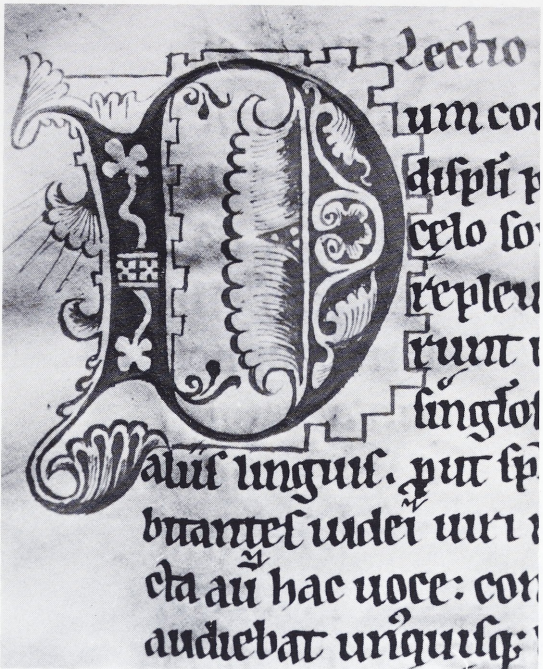 Lectio
Dum co
discpli p
cęlo so
repleu
runt
singlo
aliis linguis. put sp
bitantes iudei uiri
cta aū hac uoce: con
audiebat unquisq;